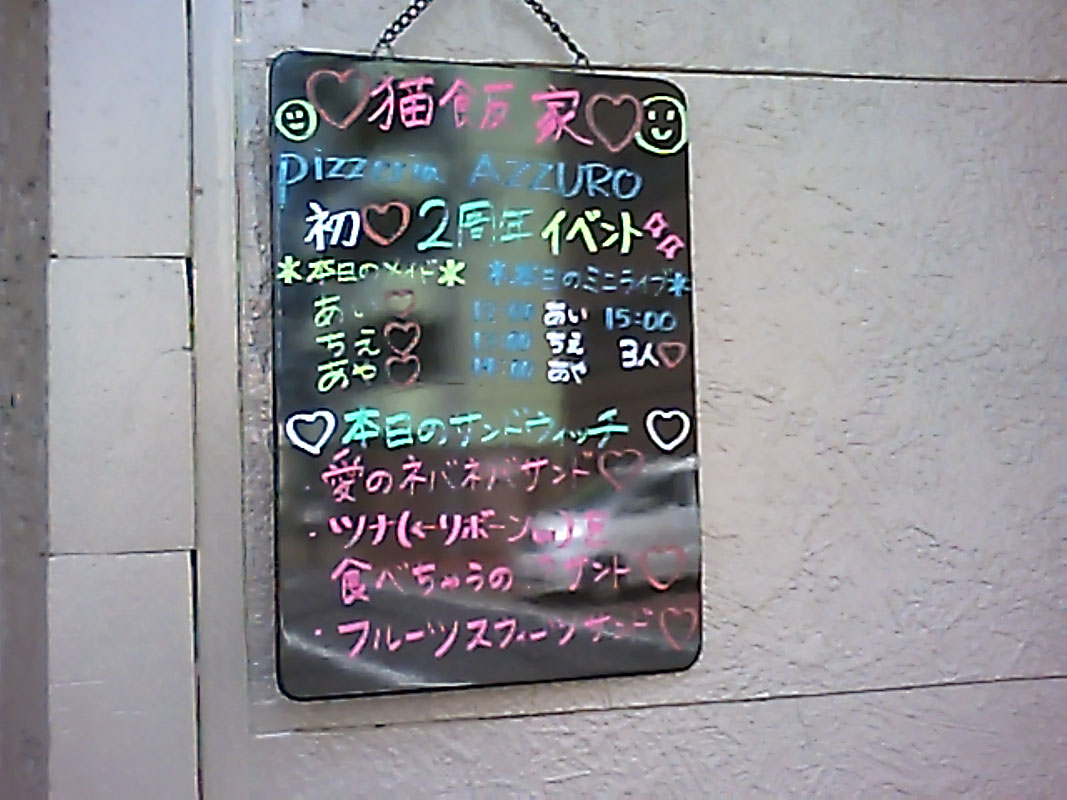 猫飯家
pizzeria AZZURO
初♡2周年イベント
*本日のメイド* *本日のミニライブ*
あい♡ あい 15:00
ちえ♡ ちえ 3人♡
あや♡ あや
♡本日のサンドウィッチ♡
・愛のネバネバサンド♡
・ツナ(←リボーン
食べちゃうの サンド♡
・フルーツスウィーツサンド♡